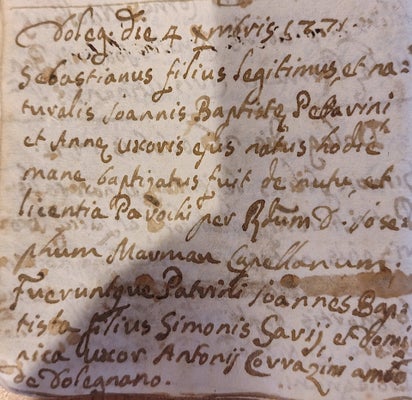 Doleg. die 4 xmbris 1771
Sebastianus filius legitimus, et na-
turalis Joannis Baptistę Pessarini
et Annę uxoris ejus natus hodie
mane baptizatus fuit de nutu, et
licentia Parochi per Rdum D. Jose-
phum Marmai Capellanum
Fueruntque Patrini Joannes Bap-
tista filius Simonis Gavij et Domi-
nica uxor Antonij Corrazini ambo
de Dolegnano.